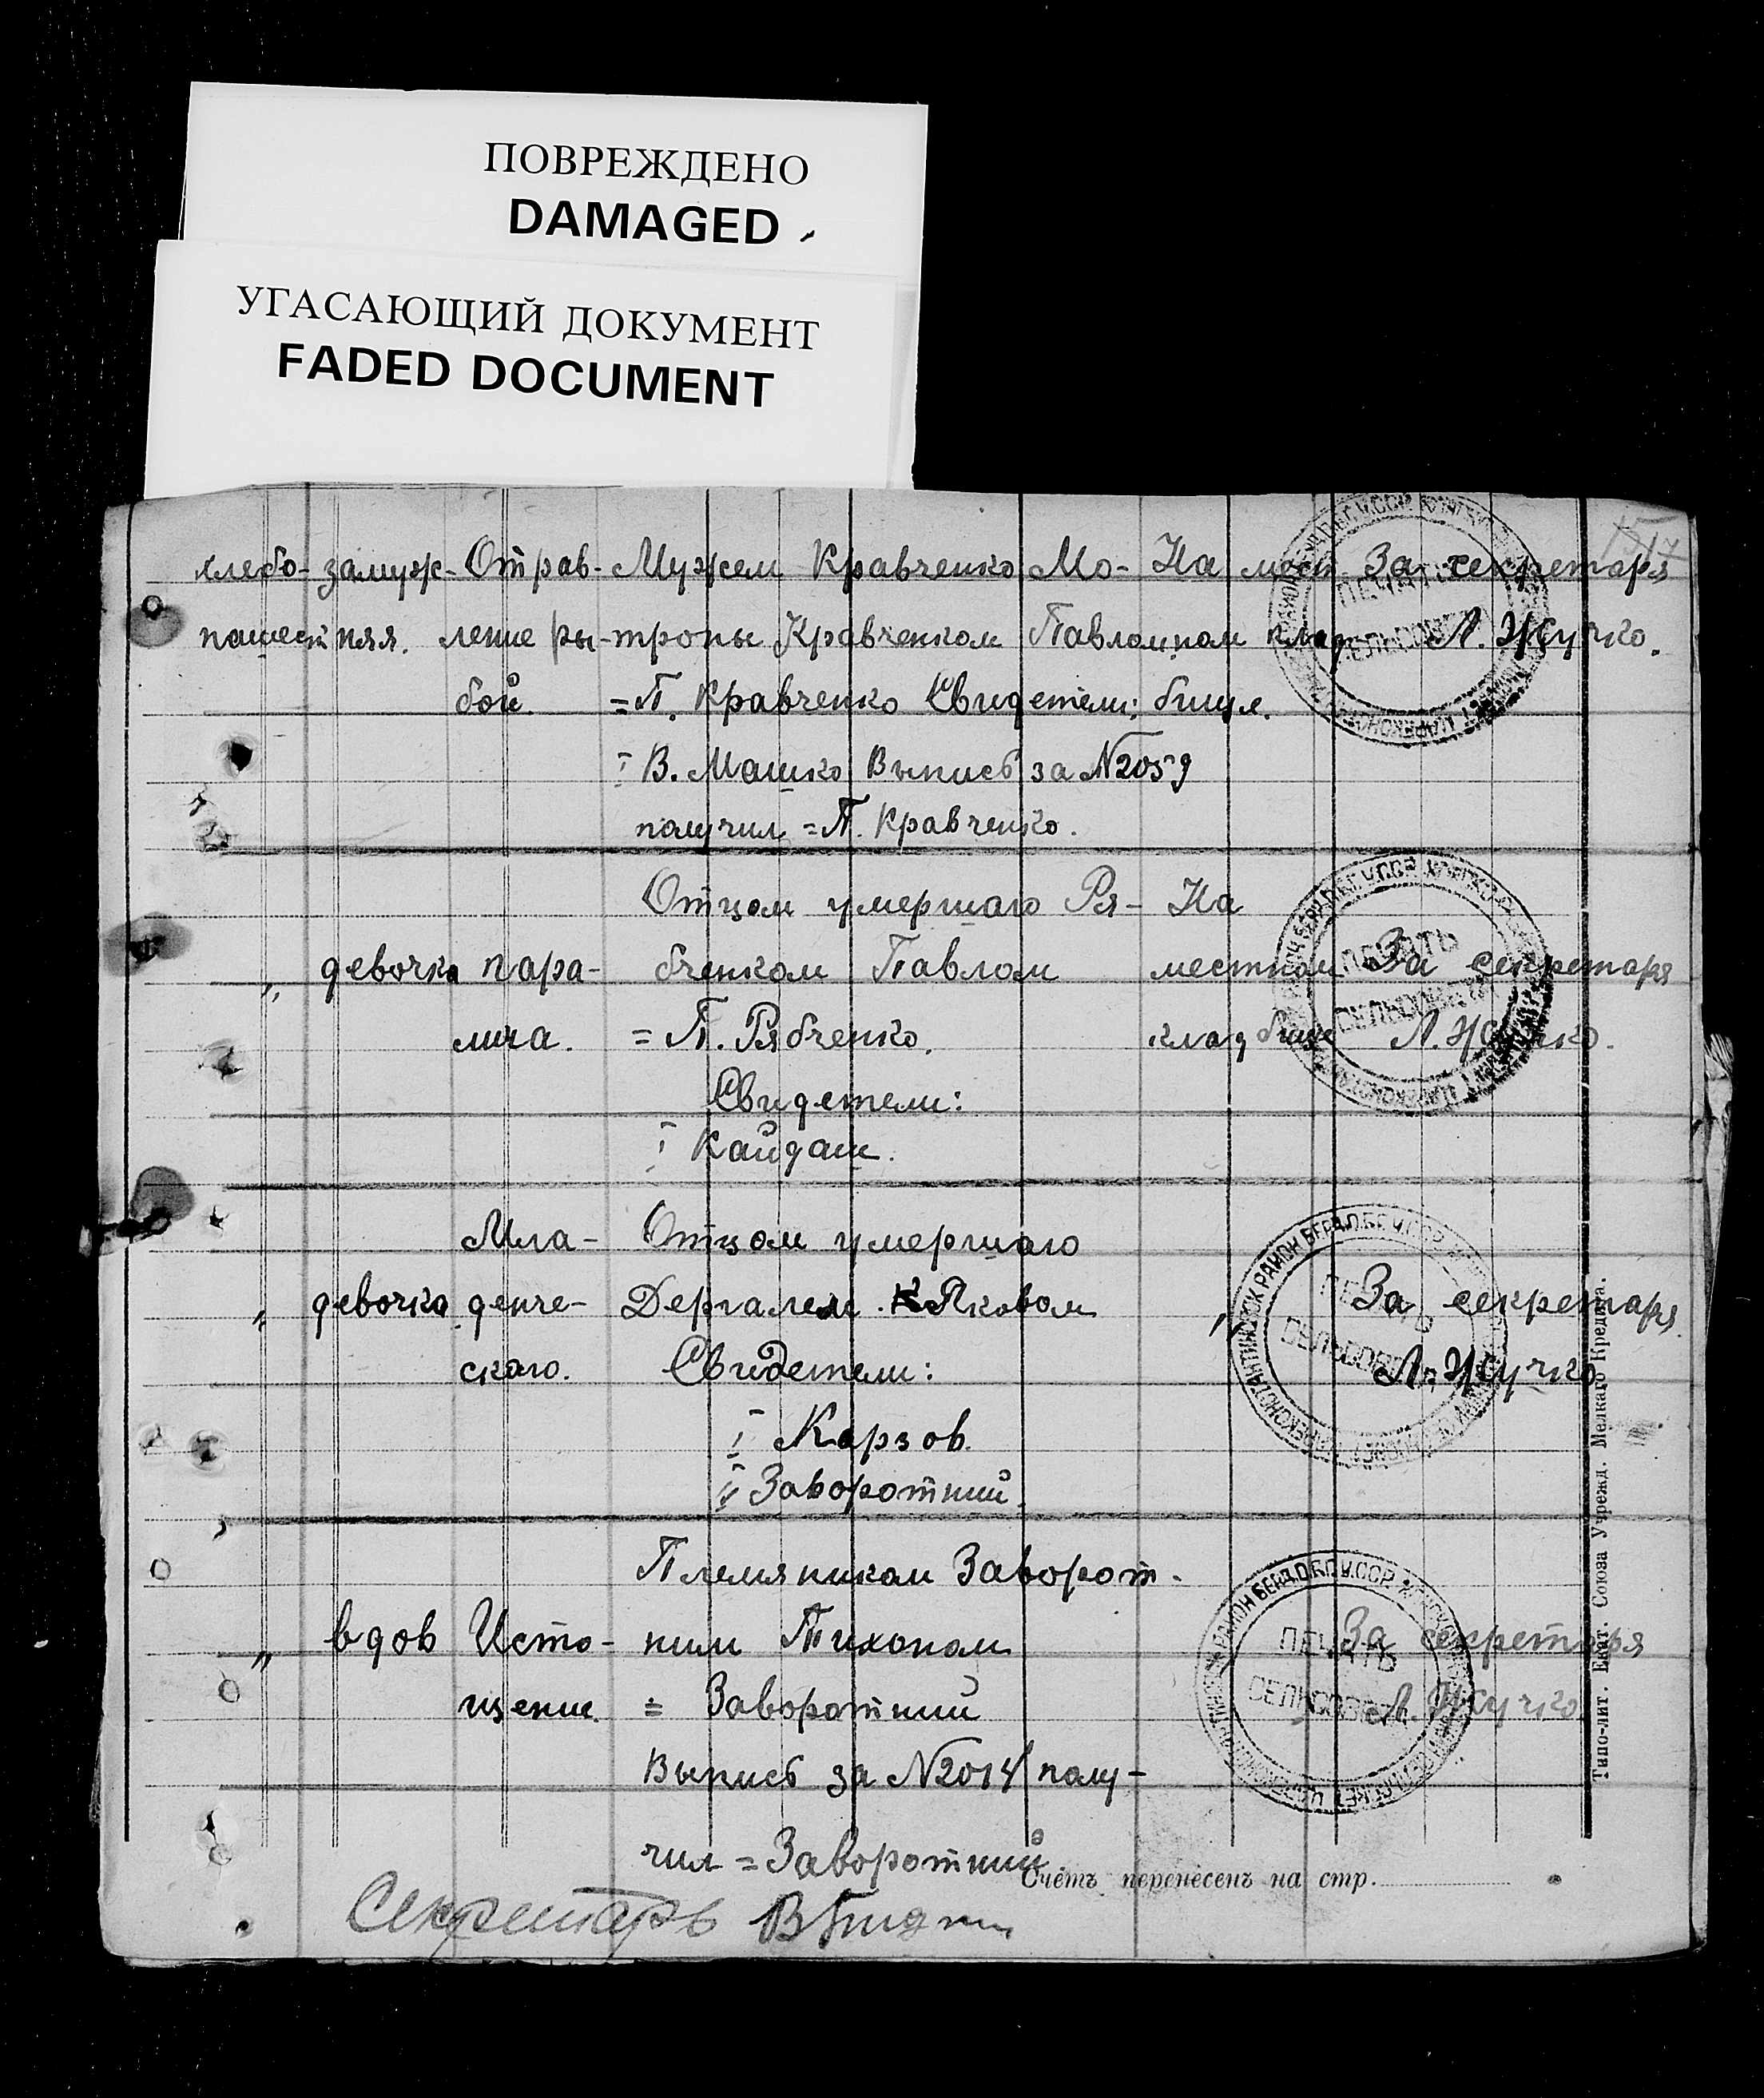 ПОВРЕЖДЕНО
DAMAGED
УГАСАЮЩИЙ ДОКУМЕНТ
FADED DOCUMENT
хлебо- замуж- Отрав- Мужем Кравченко Мо- На мест За секретаря
няя. ление ры- троны Кравченком клад Л. Жучко.
бой. = П. Кравченко Свидетели: бище.
I В. Машко Выпись за №2059
получил = П. Кравченко.
Отцом умершаго Ря- На
„ девочка пара- бченком Павлом местном За секретаря
лича. = П. Рябченко. кладбище Л. Жучко.
Свидетели:
I Кайдаш.
Мла- Отцом умершаго
„ девочка денче- Дергалем Яковом „ За секретаря
скаго. Свидетели: Л. Жучко
I Карзов.
II Заворотний.
Племяником Заворот-
„ вдов Исто- ним Тихоном За секретаря
щение. = Заворотний Л. Жучко
Выпись за №2014 полу-
чил = Заворотний
Счётъ перенесенъ на стр.
Секретарь
ПЕЧАТЬ
СЕЛЬСОВЕТА
Типо-лит. Екат. Союза Учрежд. Мелкаго Кредита.